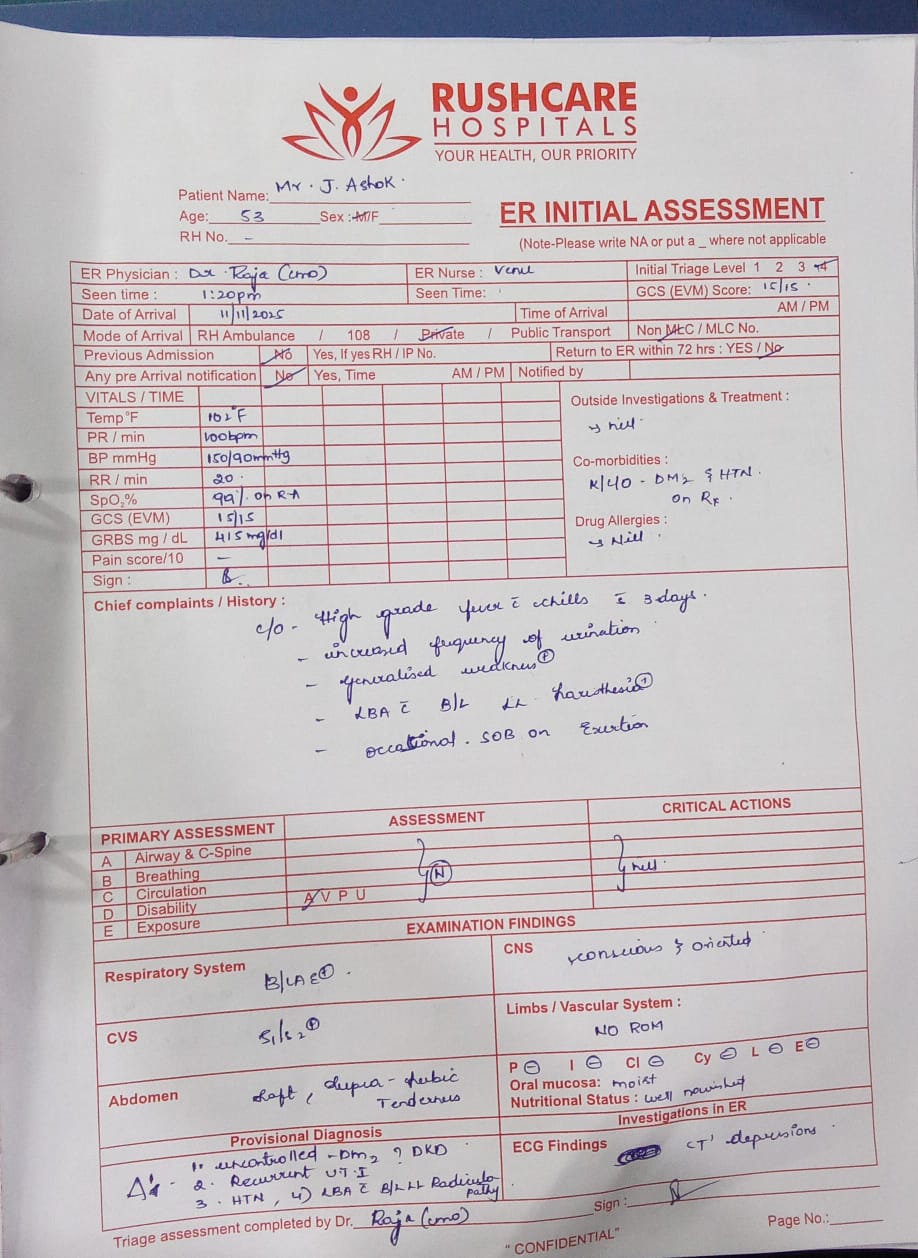 RUSHCARE
HOSPITALS
YOUR HEALTH, OUR PRIORITY
Patient Name: Mr. J. Ashok.
Age: 53 Sex : M/F
RH No. -
ER INITIAL ASSESSMENT
(Note-Please write NA or put a _ where not applicable
ER Physician : Dr. Raja (cmo) ER Nurse : Venu Initial Triage Level 1 2 3 4
Seen time : 1:20pm Seen Time: GCS (EVM) Score: 15/15.
Date of Arrival 11/11/2025 Time of Arrival AM / PM
Mode of Arrival RH Ambulance / 108 / Private / Public Transport Non MLC / MLC No.
Previous Admission No Yes, If yes RH / IP No. Return to ER within 72 hrs : YES / No
Any pre Arrival notification No Yes, Time AM / PM Notified by
VITALS / TIME
Temp°F 102°F
PR / min 100bpm
BP mmHg 150/90mmHg
RR / min 20.
SpO2% 99% on RA
GCS (EVM) 15/15
GRBS mg / dL 415 mg/dl
Pain score/10 -
Sign :
Outside Investigations & Treatment :
→ nill.
Co-morbidities :
K/C/O - DM2 & HTN.
on Rx.
Drug Allergies :
→ Nill.
Chief complaints / History :
c/o - High grade fever c̄ chills x 3 days.
- increased frequency of urination
- generalised weakness ⊕
- LBA c̄ B/L LL paresthesia ⊕
- occational. SOB on Exertion
PRIMARY ASSESSMENT ASSESSMENT CRITICAL ACTIONS
A Airway & C-Spine
B Breathing N nill.
C Circulation
D Disability A V P U
E Exposure
EXAMINATION FINDINGS
Respiratory System B/L AE ⊕.
CNS conscious & oriented
CVS S1S2 ⊕
Limbs / Vascular System :
NO ROM
Abdomen soft, supra-pubic
Tenderness
P ⊖ I ⊖ Cl ⊖ Cy ⊖ L ⊖ E ⊖
Oral mucosa: moist
Nutritional Status : well nourished
Provisional Diagnosis
1. uncontrolled - DM2 ? DKD
2. Recurrent UTI
3. HTN, 4) LBA c̄ B/L LL Radiculo
pathy
Investigations in ER
ECG Findings 'T' depressions.
Triage assessment completed by Dr. Raja (cmo) Sign :
" CONFIDENTIAL"
Page No.: